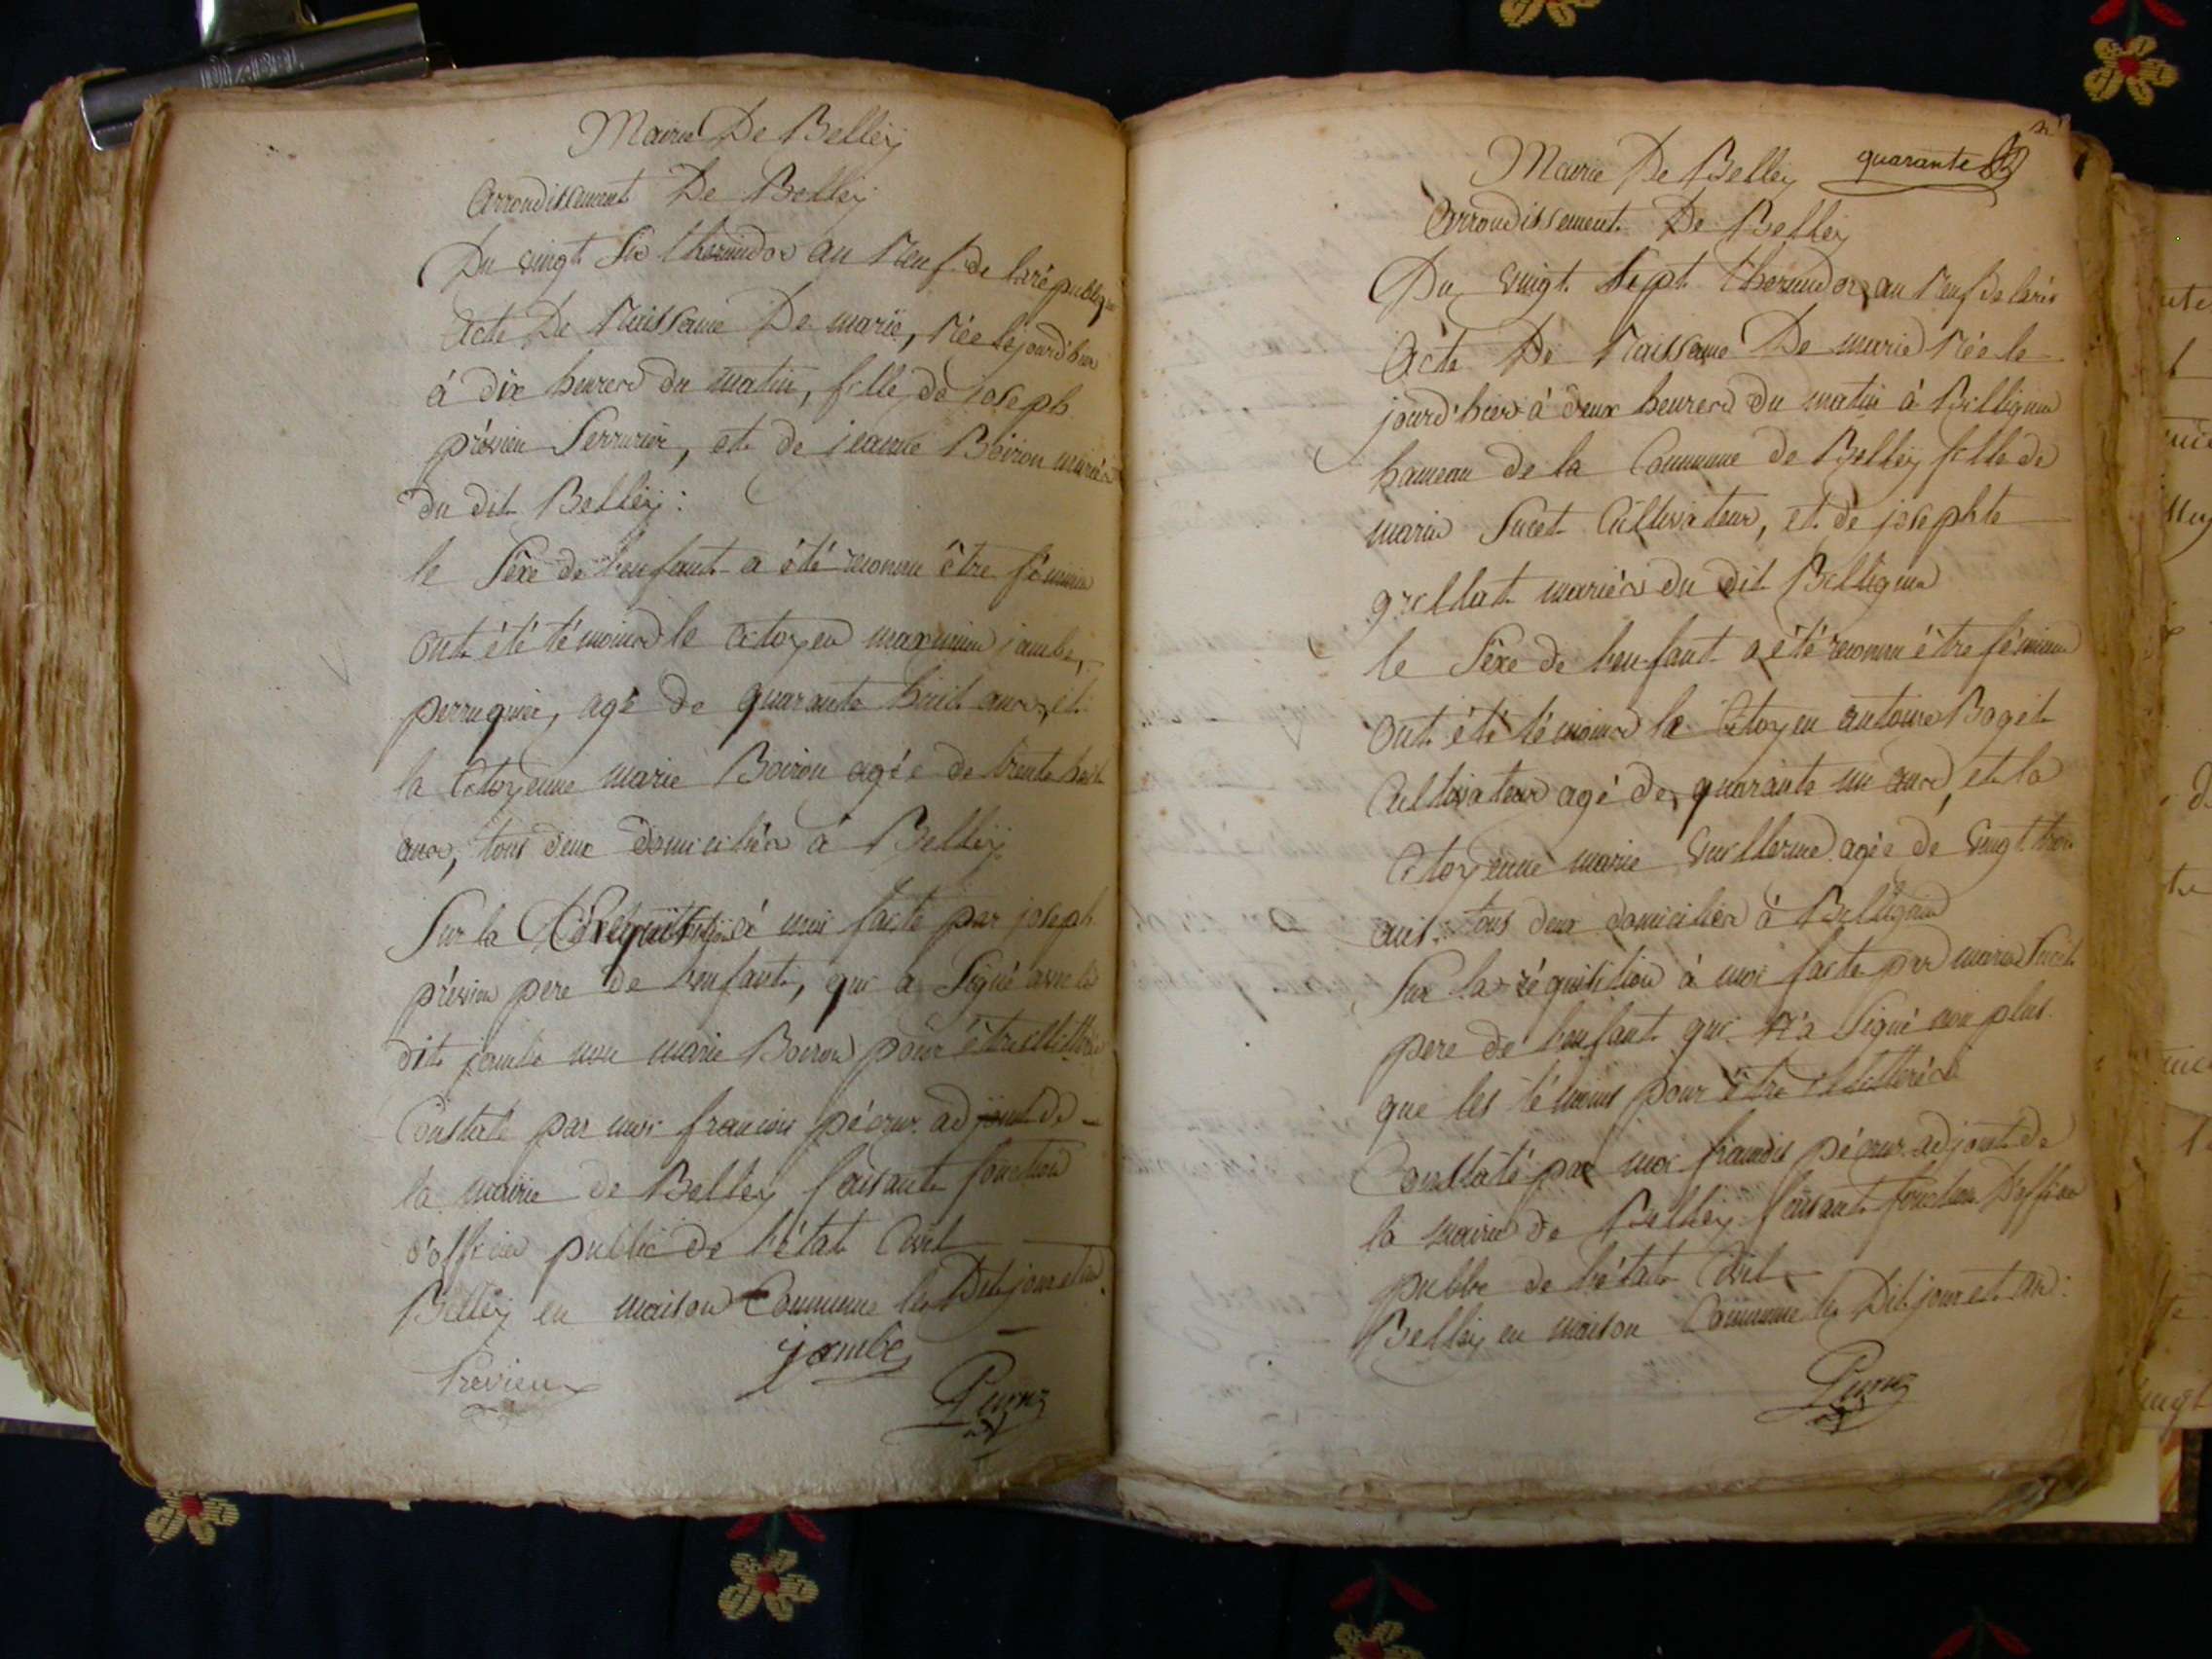 Mairie De Belleÿ
Arrondissement De Belleÿ
Du vingt Six thermidor an Neuf de la république
Acte De Naissance De marie, Née lejourd'hier
à dix heures du matin, fille de joseph
prévieu Serrurier, et de jeanne Boiron mariés
du dit Belleÿ:
le Sèxe de l'enfant a été reconnu être féminin
Ont été témoins le Citoyen maximin jambe,
perruquier, agé de quarante huit ans, et
la Citoyenne marie Boiron agée de trente huit
ans, tous deux domiciliés à Belleÿ
Sur la Requisition à moi faite par joseph
prévieu pere de l'enfant, qui a Signé avec le
dit jambe non marie Boiron pour être illitérée
Constaté par moi francois pécour adjoint de
la mairie de Belleÿ faisant fonction
d'officier public de l'état Civil
Belleÿ en maison Commune les Dit jour et an
Prévieu jambe
Mairie De Belleÿ quarante
Arrondissement De Belleÿ
Du vingt Sept thermidor, an Neuf de la rép
Acte De Naissance De marie Née le
jourd'hier à deux heures du matin à Billignin
hameau de la Commune de Belleÿ fille de
marin Sucet Cultivateur, et de josephte
grellat mariés du dit Billignin
le Sèxe de l'enfant a été reconnu être féminin
Ont été témoins le Citoyen antoine Boget
Cultivateur agé de quarante un ans, et la
Citoyenne marie Vuillerme agée de vingt trois
ans, tous deux domiciliés à Billignin
Sur la réquisition à moi faite par marin Sucet
pere de l'enfant qui N'a Signé non plus
que les témoins pour être illitterés
Constaté par moi francois pécour adjoint de
la mairie de Belleÿ faisant fonction D'officier
public de l'état Civil
Belleÿ en maison Commune les Dit jour et an: